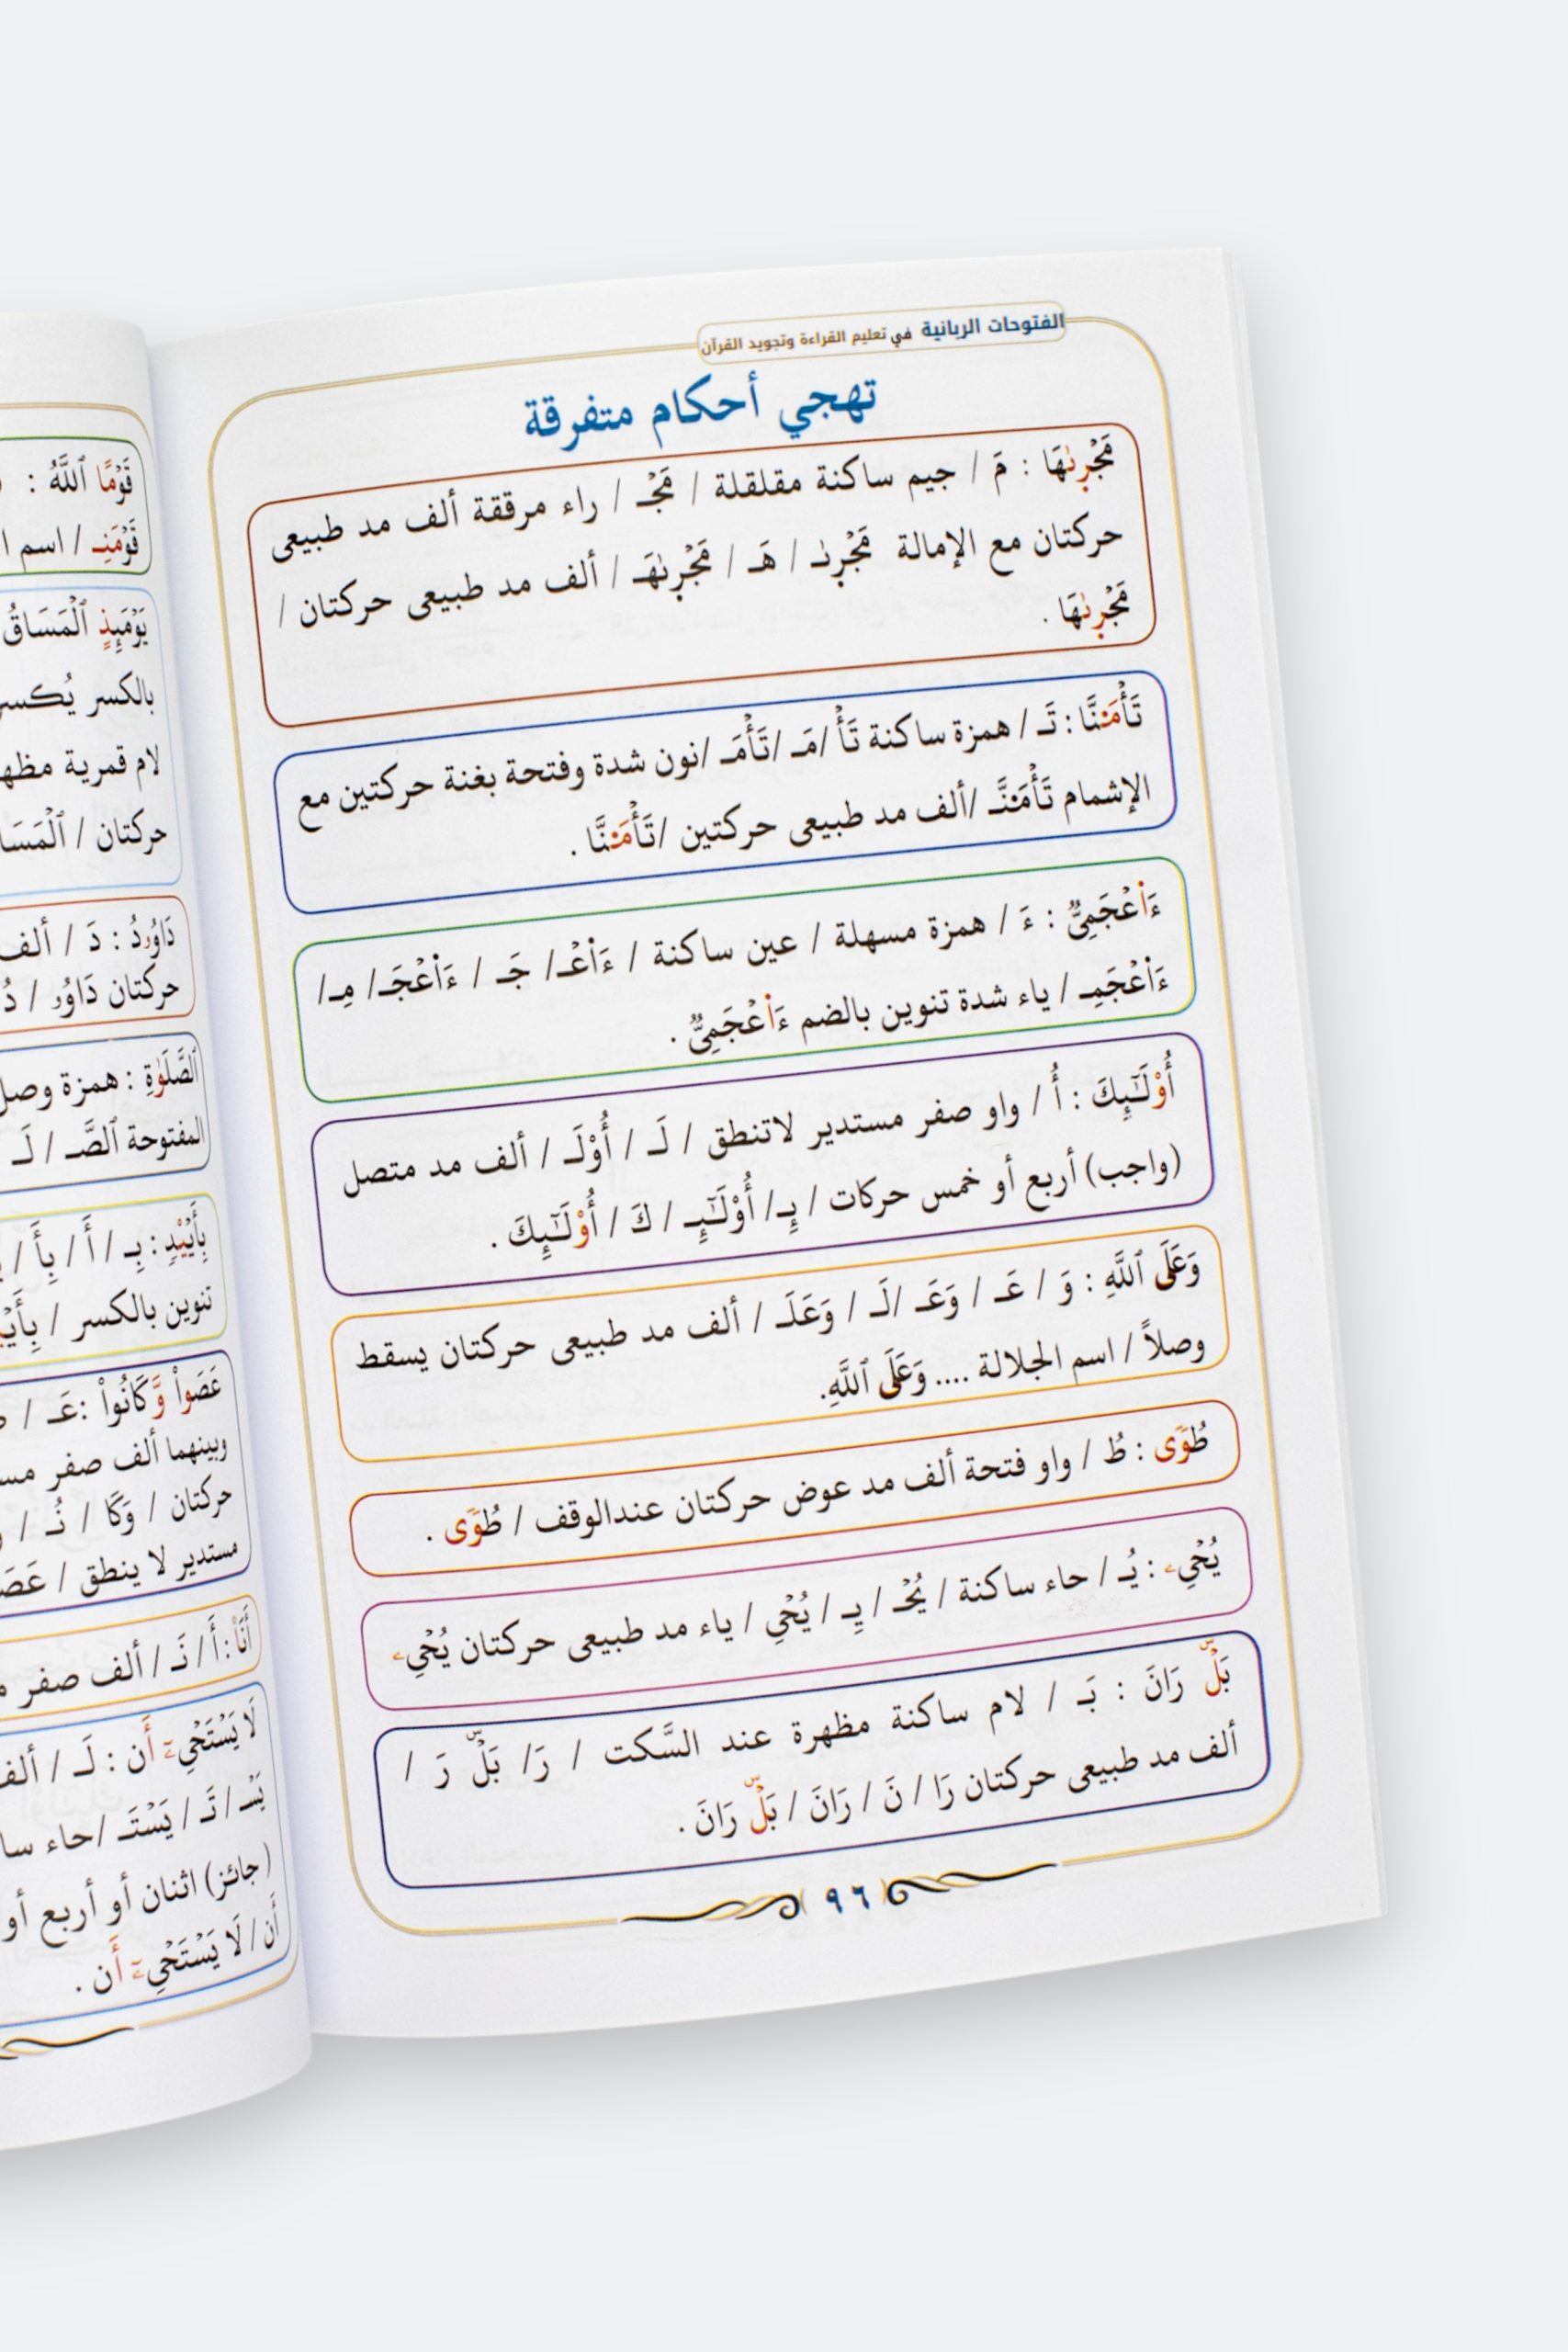 الفتوحات الربانية في تعليم القراءة وتجويد القرآن
تهجي أحكام متفرقة
مَجْر۪ىٰهَا : مَ / جيم ساكنة مقلقلة / مَجْـ / راء مرققة ألف مد طبيعى
حركتان مع الإمالة مَجْر۪ىٰـ / هَـ / مَجْر۪ىٰهَـ / ألف مد طبيعى حركتان /
مَجْر۪ىٰهَا .
تَأْمَ۫نَّا : تَـ / همزة ساكنة تَأْ /مَـ /تَأْمَـ /نون شدة وفتحة بغنة حركتين مع
الإشمام تَأْمَ۫نَّـ /ألف مد طبيعى حركتين /تَأْمَ۫نَّا .
ءَا۬عْجَمِىٌّ : ءَ / همزة مسهلة / عين ساكنة / ءَا۬عْـ/ جَـ / ءَا۬عْجَـ/ مِـ/
ءَا۬عْجَمِـ / ياء شدة تنوين بالضم ءَا۬عْجَمِىٌّ .
أُوْلَـٰٓئِكَ : أُ / واو صفر مستدير لاتنطق / لَـ / أُوْلَـ / ألف مد متصل
(واجب) أربع أو خمس حركات / ئِـ/ أُوْلَـٰٓئِـ / كَ / أُوْلَـٰٓئِكَ .
وَعَلَى ٱللَّهِ : وَ / عَـ / وَعَـ /لَـ / وَعَلَـ / ألف مد طبيعى حركتان يسقط
وصلاً / اسم الجلالة .... وَعَلَى ٱللَّهِ.
طُوًى : طُ / واو فتحة ألف مد عوض حركتان عندالوقف / طُوًى .
يُحْىِۦ : يُـ / حاء ساكنة / يُحْـ / يِـ / يُحْىِ / ياء مد طبيعى حركتان يُحْىِۦ
بَلْۜ رَانَ : بَـ / لام ساكنة مظهرة عند السَّكت / رَ/ بَلْۜ رَ /
ألف مد طبيعى حركتان رَا / نَ / رَانَ / بَلْۜ رَانَ .
٩٦
قَوْمًا ٱللَّهُ :
قَوْمَنِـ / اسم
يَوْمَئِذٍ ٱلْمَسَاقُ
بالكسر يُكسر
لام قمرية
حركتان /
دَاوُۥدُ : دَ / ألف
حركتان دَاوُۥ / دُ
ٱلصَّلَوٰةِ : همزة وصل
المفتوحة ٱلصَّـ / لَـ
بِأَيْي۟دٍ : بِـ / أَ / بِأَ /
تنوين بالكسر /
عَصَواْ وَّكَانُواْ :عَـ /
وبينهما ألف صفر
حركتان / وَكَا / نُـ /
مستدير لا ينطق /
أَنَا۠ : أَ / نَـ / ألف صفر
لَا يَسْتَحْىِۦٓ أَن : لَـ /
يَسْـ / تَـ / يَسْتَـ /حاء
(جائز) اثنان أو أربع أو
أَن / لَا يَسْتَحْىِۦٓ أَن .